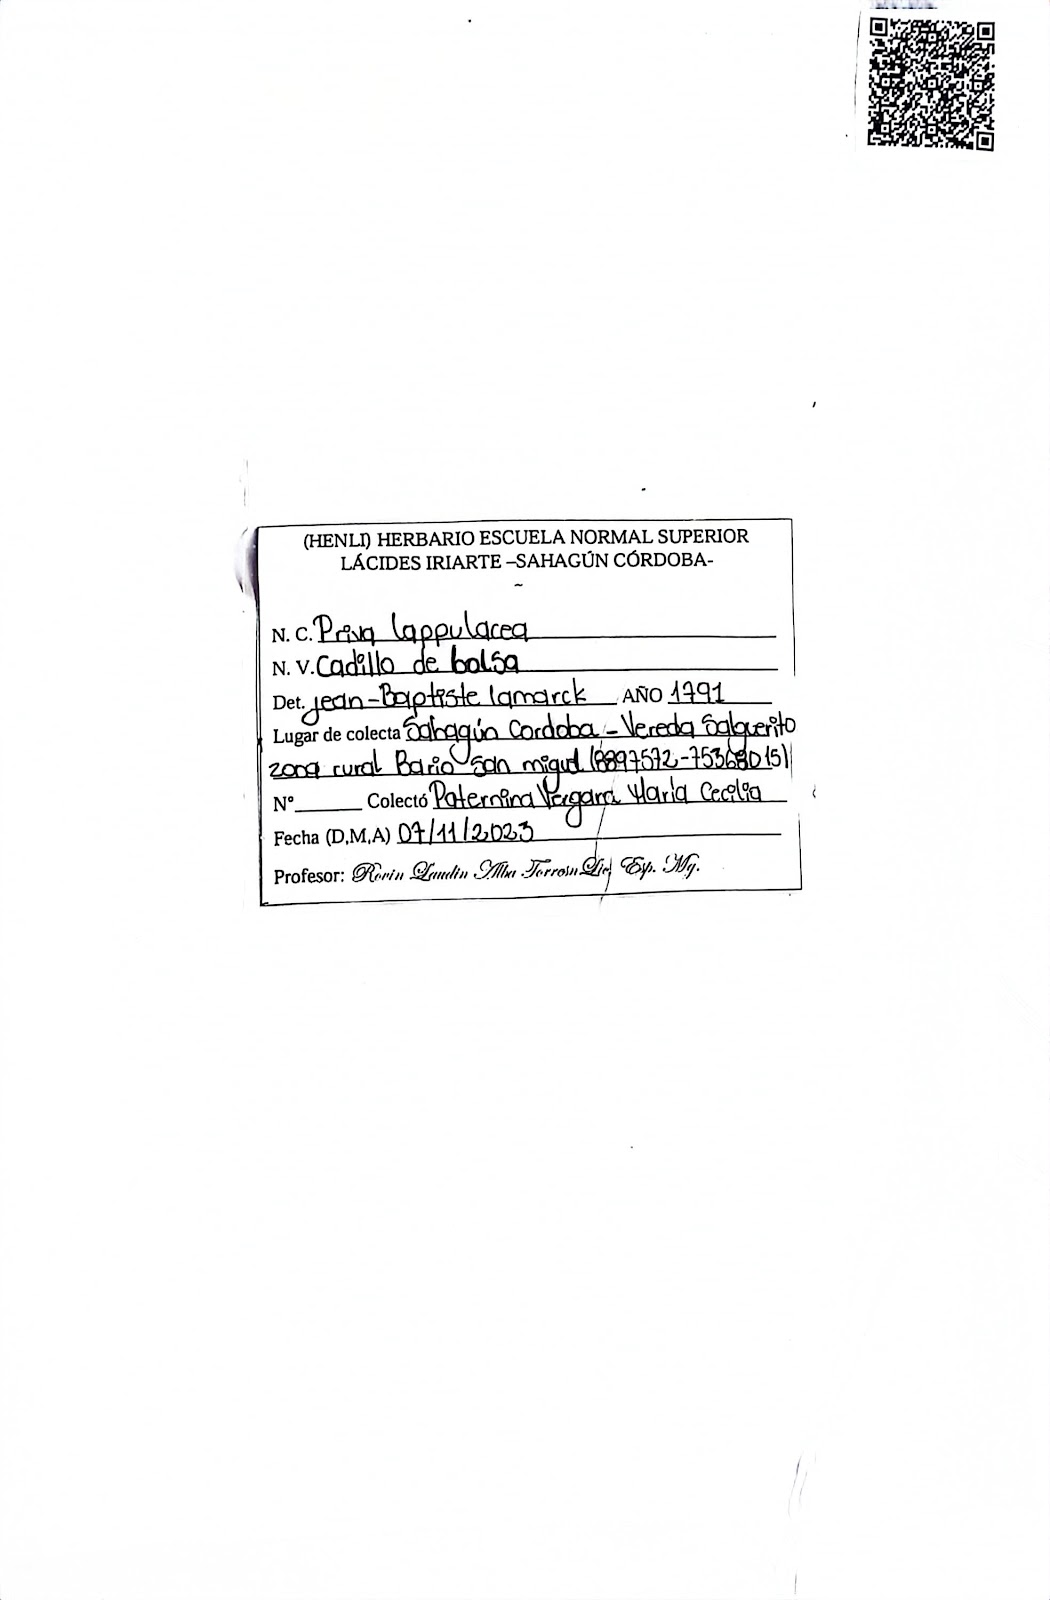 (HENLI) HERBARIO ESCUELA NORMAL SUPERIOR
LÁCIDES IRIARTE –SAHAGÚN CÓRDOBA-
~
N. C. Priva lappulacea
N. V. Cadillo de bolsa
Det. jean-Baptiste lamarck AÑO 1791
Lugar de colecta Sahagún Cordoba - Vereda Salguerito
zona rural Bario San miguel
N° Colectó Paternina Vergara Maria Cecilia
Fecha (D,M,A) 07/11/2023
Profesor: Alba Esp. Mg.